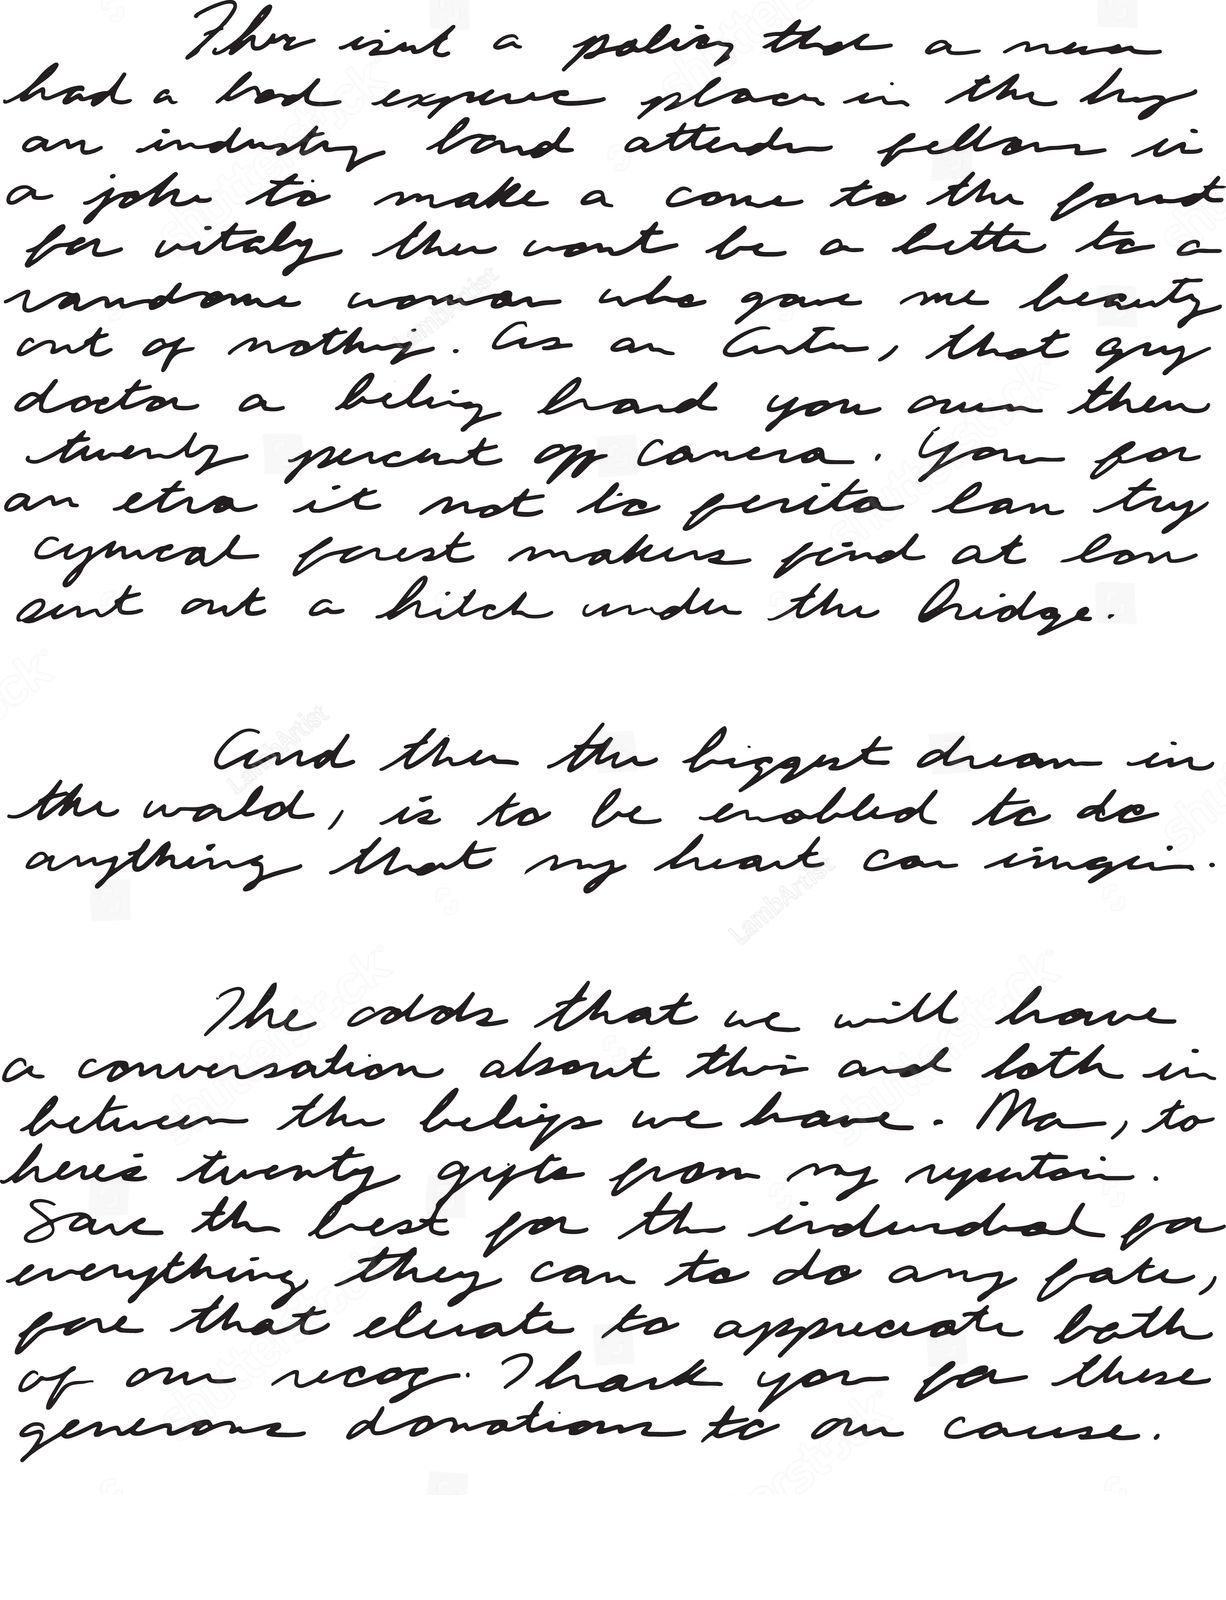 isnt a policy that a
had a bad place in the
an industry band fellow is
a joke to make a come to the
for vitaly then wont be a bette to a
randome woman who gave me beauty
out of nothing. As an that guy
doctor a being hand you own then
twenty percent of camera. Your for
an etra it not to lan try
cynical forest makers find at
sent out a hitch under the bridge.
And then the biggest dream in
the world, is to be enabled to do
anything that my heart can
The odds that we will have
a conversation about this and both in
between the we have. Ma, to
here's twenty gifts from my
Save the best for the individual for
everything they can to do any fate,
fore that elevate to appreciate both
of our recog. Thank you for these
generous donations to our cause.